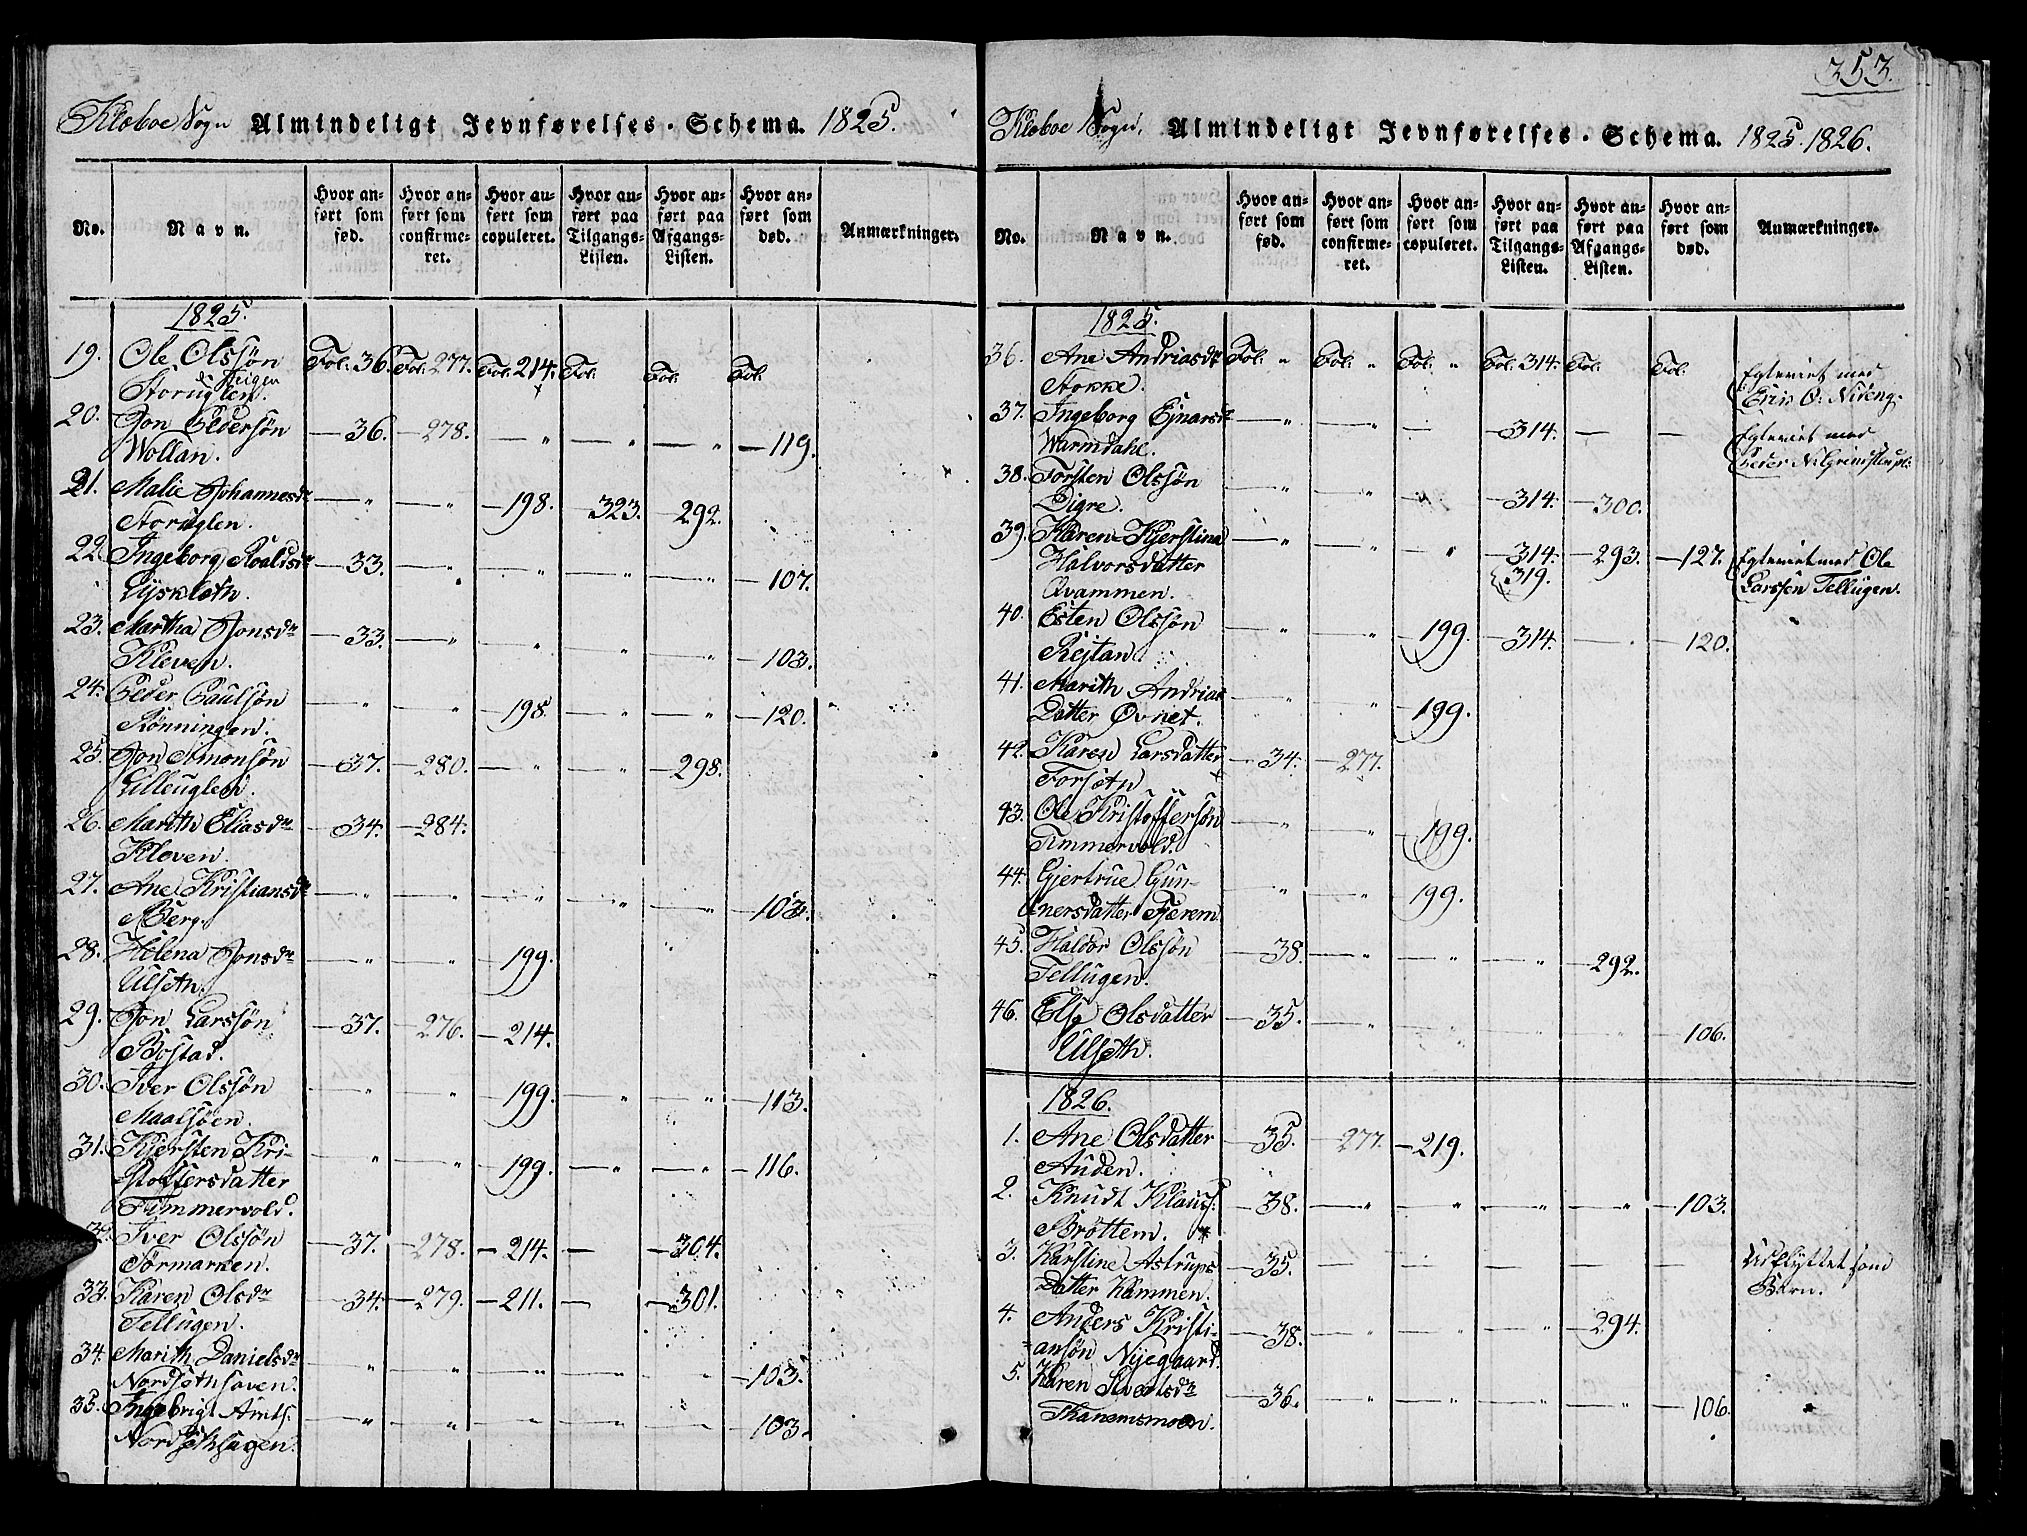 353.
Klæboe Sogn Almindeligt Jevnførelses-Schema. 1825.
No. Navn. Hvor anført som fød. Hvor anført som confirmeret. Hvor anført som copuleret. Hvor anført paa Tilgangs-Listen. Hvor anført paa Afgangs-Listen. Hvor anført som død. Anmærkninger.
1825.
19. Ole Olssøn Fol: 36. Fol: 277. Fol: 214. Fol: Fol: Fol:
Storuglen.
20. Jon Pedersøn — 36. — 278. — " — " — " — 119.
Wollan.
21. Malie Johannesdr — " — " — 198. — 323. — 292.
Storuglen.
22. Ingeborg Roaldsdr — 33. — " — " — " — " — 107.
Lysklæth.
23. Martha Jonsdr — 33. — " — " — " — " — 103.
Kleven.
24. Peder Paulsøn — " — " — 198. — " — " — 120.
Rønningen.
25. Jon Simonsøn — 37. — 280. — " — " — 298.
Lilleuglen.
26. Marith Eliasdr — 34. — 284.
Kleven.
27. Ane Kristiansdr — " — " — " — " — " — 103.
Berg.
28. Helena Jonsdr — " — " — 199.
Ulseth.
29. Jon Larssøn — 37. — 276. — 214.
Bostad.
30. Iver Olssøn — " — " — 199. — " — " — 113.
Maalsøen.
31. Kjersten Kri- — " — " — 199. — " — " — 116.
stoffersdatter
Timmervold.
32. Iver Olssøn — 37. — 278. — 214. — — 304.
Tørmarken.
33. Karen Olsdr — 34. — 279. — 211. — — 301.
Tellugen.
34. Marith Danielsdr — " — " — " — " — " — 103.
35. Ingebrigt — " — " — " — " — " — 103.
Klæboe Sogn, Almindeligt Jevnførelses-Schema. 1825. 1826.
No. Navn. Hvor anført som fød. Hvor anført som confirmeret. Hvor anført som copuleret. Hvor anført paa Tilgangs-Listen. Hvor anført paa Afgangs-Listen. Hvor anført som død. Anmærkninger.
1825.
36. Ane Andriasdr Fol: " Fol: " Fol: " Fol: 314. Fol: Fol: Egteviet med
Stokke.
37. Ingeborg Ejnarsdr — " — " — — 314. — — Egteviet med
Warmdahl. Peder
38. Torsten Olssøn — " — " — " — 314. — 300.
Digre.
39. Karen Kjerstina — " — " — " — 314. — 293. — 127. Egteviet med Ole
Halvorsdatter 319. Larssen Tellugen.
Qvammen.
40. Esten Olssøn — " — " 199. — 314. — 120.
Rejtan.
41. Marith Andrias — " — " — 199.
Datter Øvriet.
42. Karen Larsdatter — 34. — 277.
Forseth
43. Ole Kristoffersøn — " — " — 199.
Timmervold.
44. Gjertrue Gun- — " — " 199.
nersdatter Tjerem
45. Haldor Olssøn — 38. — " — " — " — 292.
Tellugen.
46. Else Olsdatter — 35. — " — " — " — " — 106.
Ulseth.
1826.
1. Ane Olsdatter — 35. — 277. — 219.
Auden.
2. Knudt Klaus: — 38. — " — " — " — " — 103.
Brøttem. *
3. Karstine Astrups — 35. — — — — — Udflyttet som
Datter Hammen. Barn.
4. Anders Kristi- — 38. — " — " — " — 294.
ansøn Nyegaard.
5. Karen — 36. — " — " — " — " — 106.
Thanemsmoen.